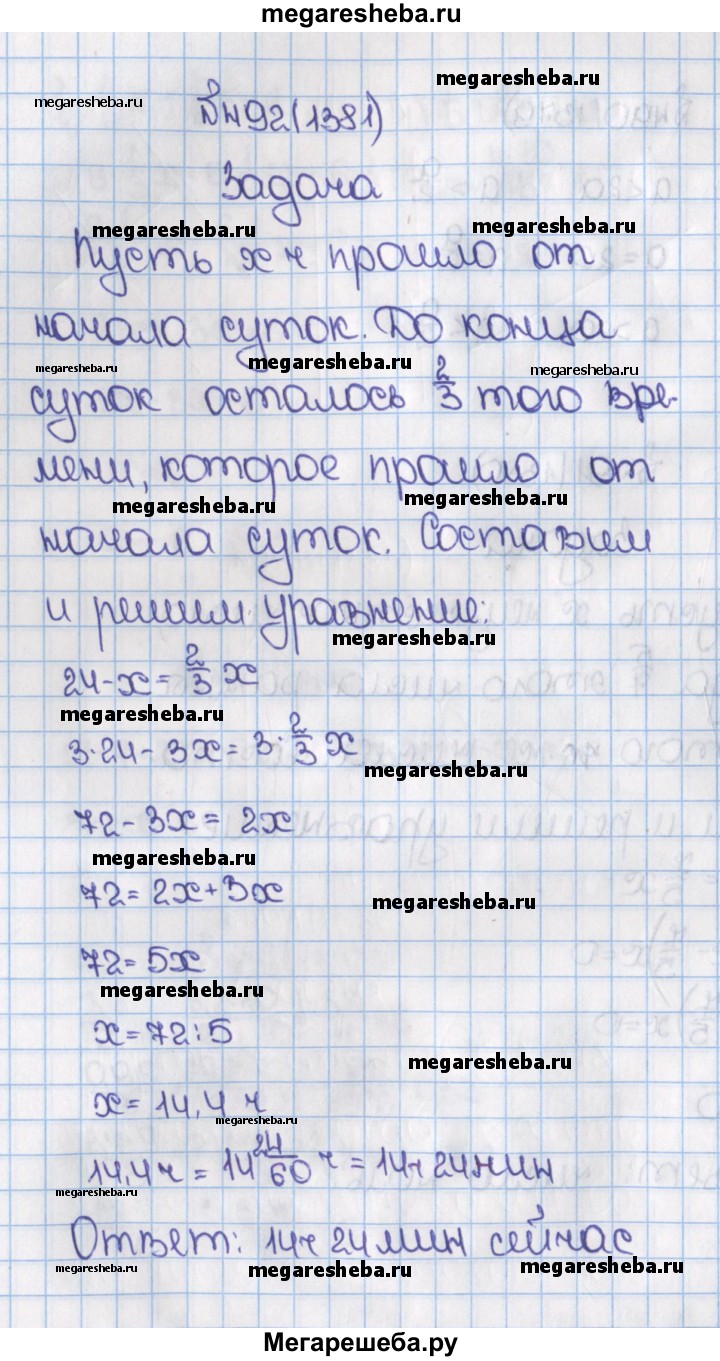 megaresheba.ru
megaresheba.ru
megaresheba.ru
№ 92(1381)
Задача
megaresheba.ru
megaresheba.ru
Пусть x ч прошло от
начала суток. До конца
megaresheba.ru
megaresheba.ru
megaresheba.ru
суток осталось 2/3 того вре-
мени, которое прошло от
megaresheba.ru
megaresheba.ru
начала суток. Составим
и решим уравнение:
megaresheba.ru
24-x=2/3 x
megaresheba.ru
3·24-3x=3·2/3 x
megaresheba.ru
72-3x=2x
megaresheba.ru
72=2x+3x
megaresheba.ru
72=5x
megaresheba.ru
x=72:5
megaresheba.ru
x=14,4 ч
megaresheba.ru
14,4ч=14 24/60 ч=14ч 24мин
megaresheba.ru
megaresheba.ru
Ответ: 14ч 24мин сейчас
megaresheba.ru
megaresheba.ru
megaresheba.ru
Мегарешеба.ру